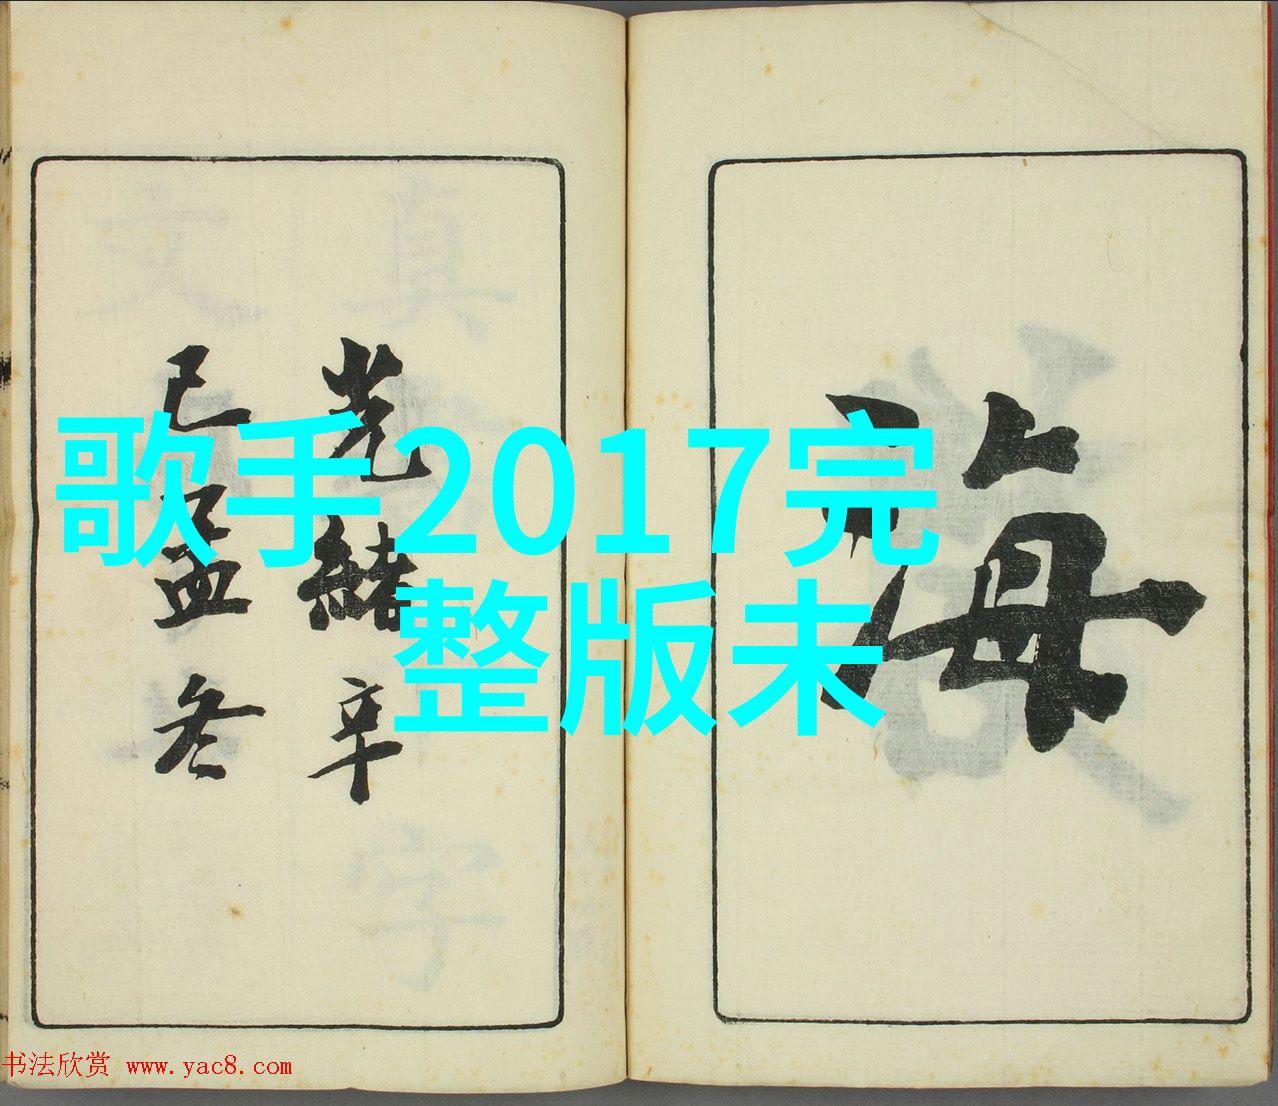 歌手2017完
整版未
海
光緒辛
巳孟冬
书法欣赏 www.yac8.com